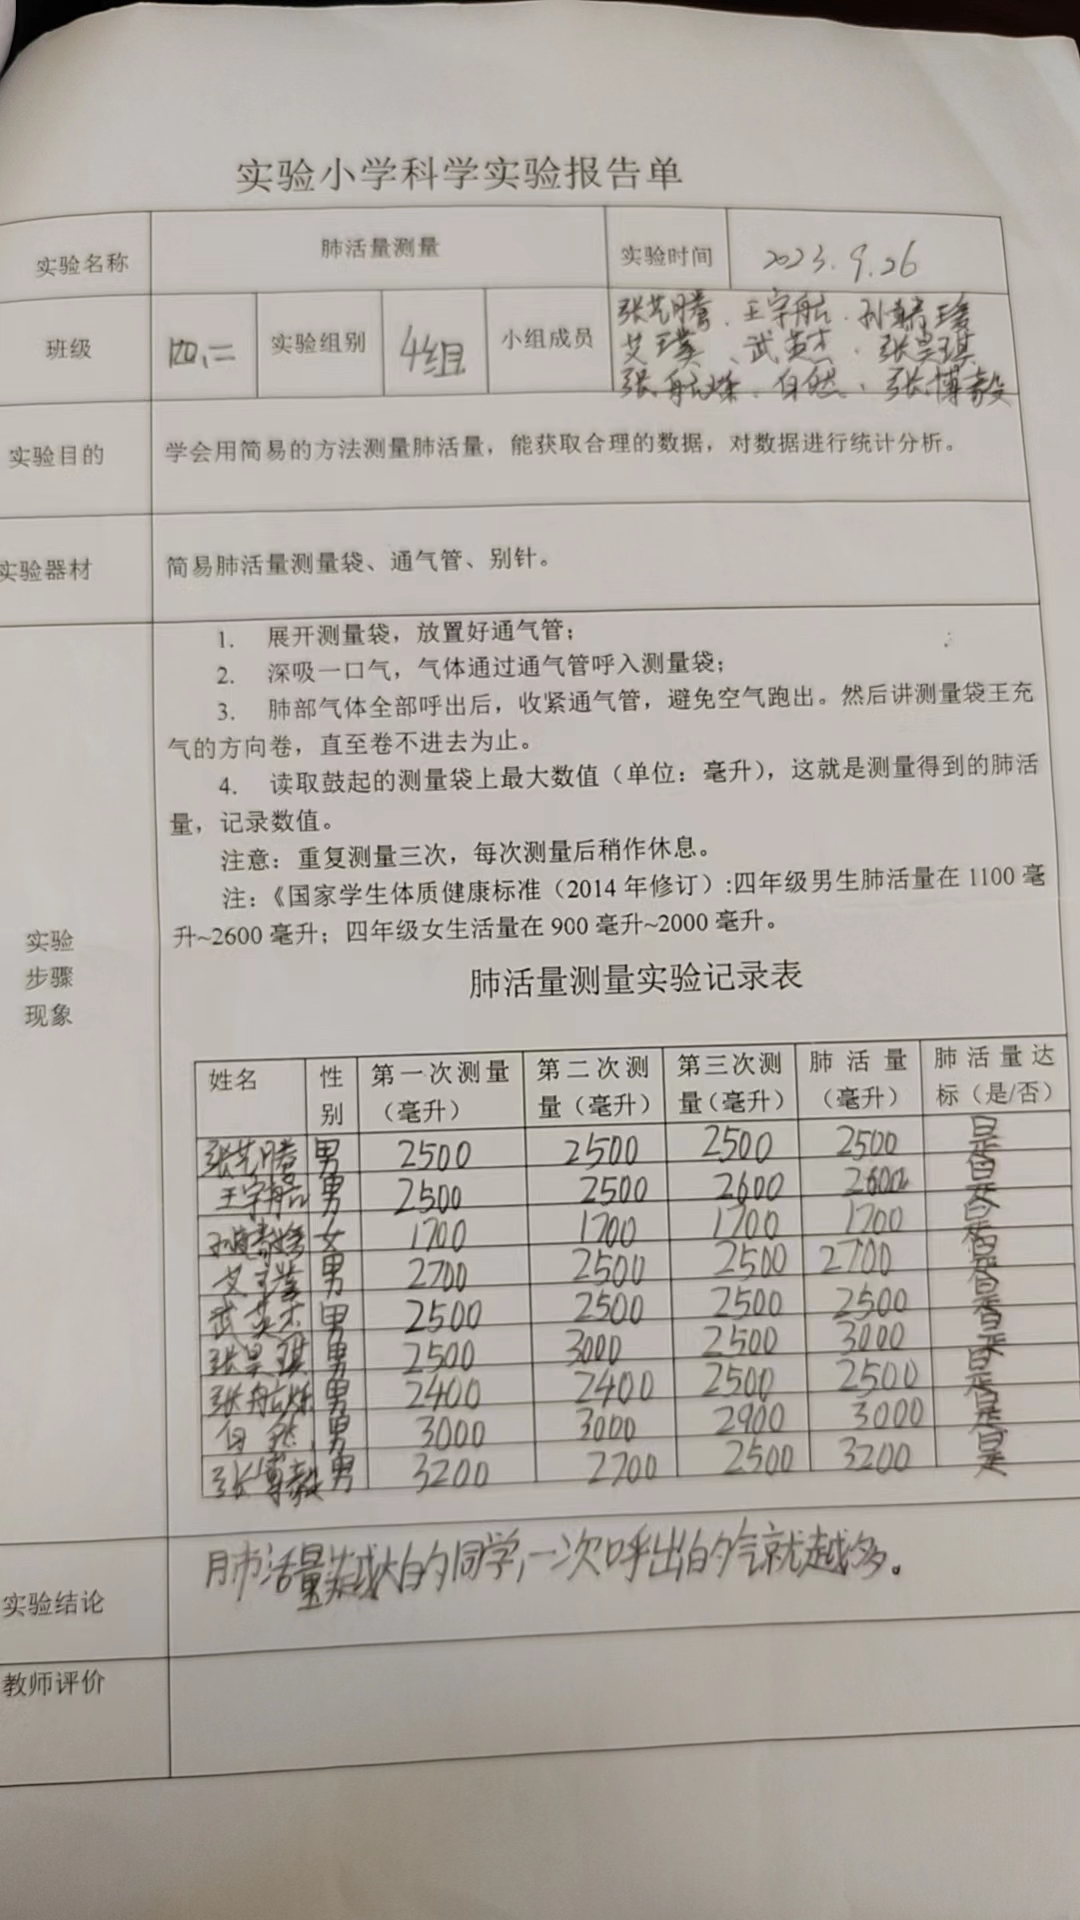 实验小学科学实验报告单
实验名称 肺活量测量 实验时间 2023.9.26
班级 四、二 实验组别 4组 小组成员 张艺腾、王宇航、孙
艾璞、武英杰、张昊琪
张航烁、白然、张博毅
实验目的 学会用简易的方法测量肺活量，能获取合理的数据，对数据进行统计分析。
实验器材 简易肺活量测量袋、通气管、别针。
1. 展开测量袋，放置好通气管；
2. 深吸一口气，气体通过通气管呼入测量袋；
3. 肺部气体全部呼出后，收紧通气管，避免空气跑出。然后讲测量袋王充
气的方向卷，直至卷不进去为止。
4. 读取鼓起的测量袋上最大数值（单位：毫升），这就是测量得到的肺活
量，记录数值。
注意：重复测量三次，每次测量后稍作休息。
注：《国家学生体质健康标准（2014年修订）:四年级男生肺活量在1100毫
升~2600毫升；四年级女生活量在900毫升~2000毫升。
实验
步骤
现象
肺活量测量实验记录表
姓名 性 第一次测量 第二次测 第三次测 肺活量 肺活量达
别 （毫升） 量（毫升） 量（毫升） （毫升） 标（是/否）
张艺腾 男 2500 2500 2500 2500 是
王宇航 男 2500 2500 2600 2600 是
孙 女 1700 1700 1700 1700 是
艾璞 男 2700 2500 2500 2700 是
武英杰 男 2500 2500 2500 2500 是
张昊琪 男 2500 3000 2500 3000 是
张航烁 男 2400 2400 2500 2500 是
白然 男 3000 3000 2900 3000 是
张博毅 男 3200 2700 2500 3200 是
实验结论 肺活量越大的同学,一次呼出的气就越多。
教师评价